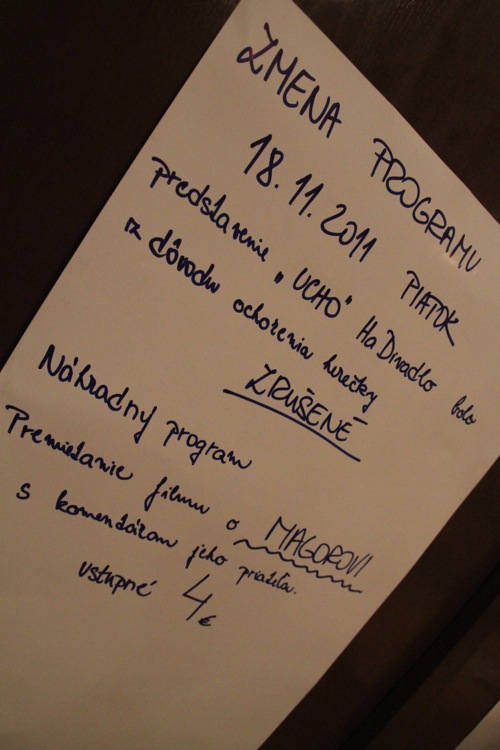 ZMENA PROGRAMU
18.11.2011 PIATOK
predstavenie „UCHO" HaDivadlo bolo
z dôvodu ochorenia herečky
ZRUŠENÉ
Náhradný program
Premietanie filmu o MAGOROVI
s komentárom jeho priateľa.
vstupné 4€